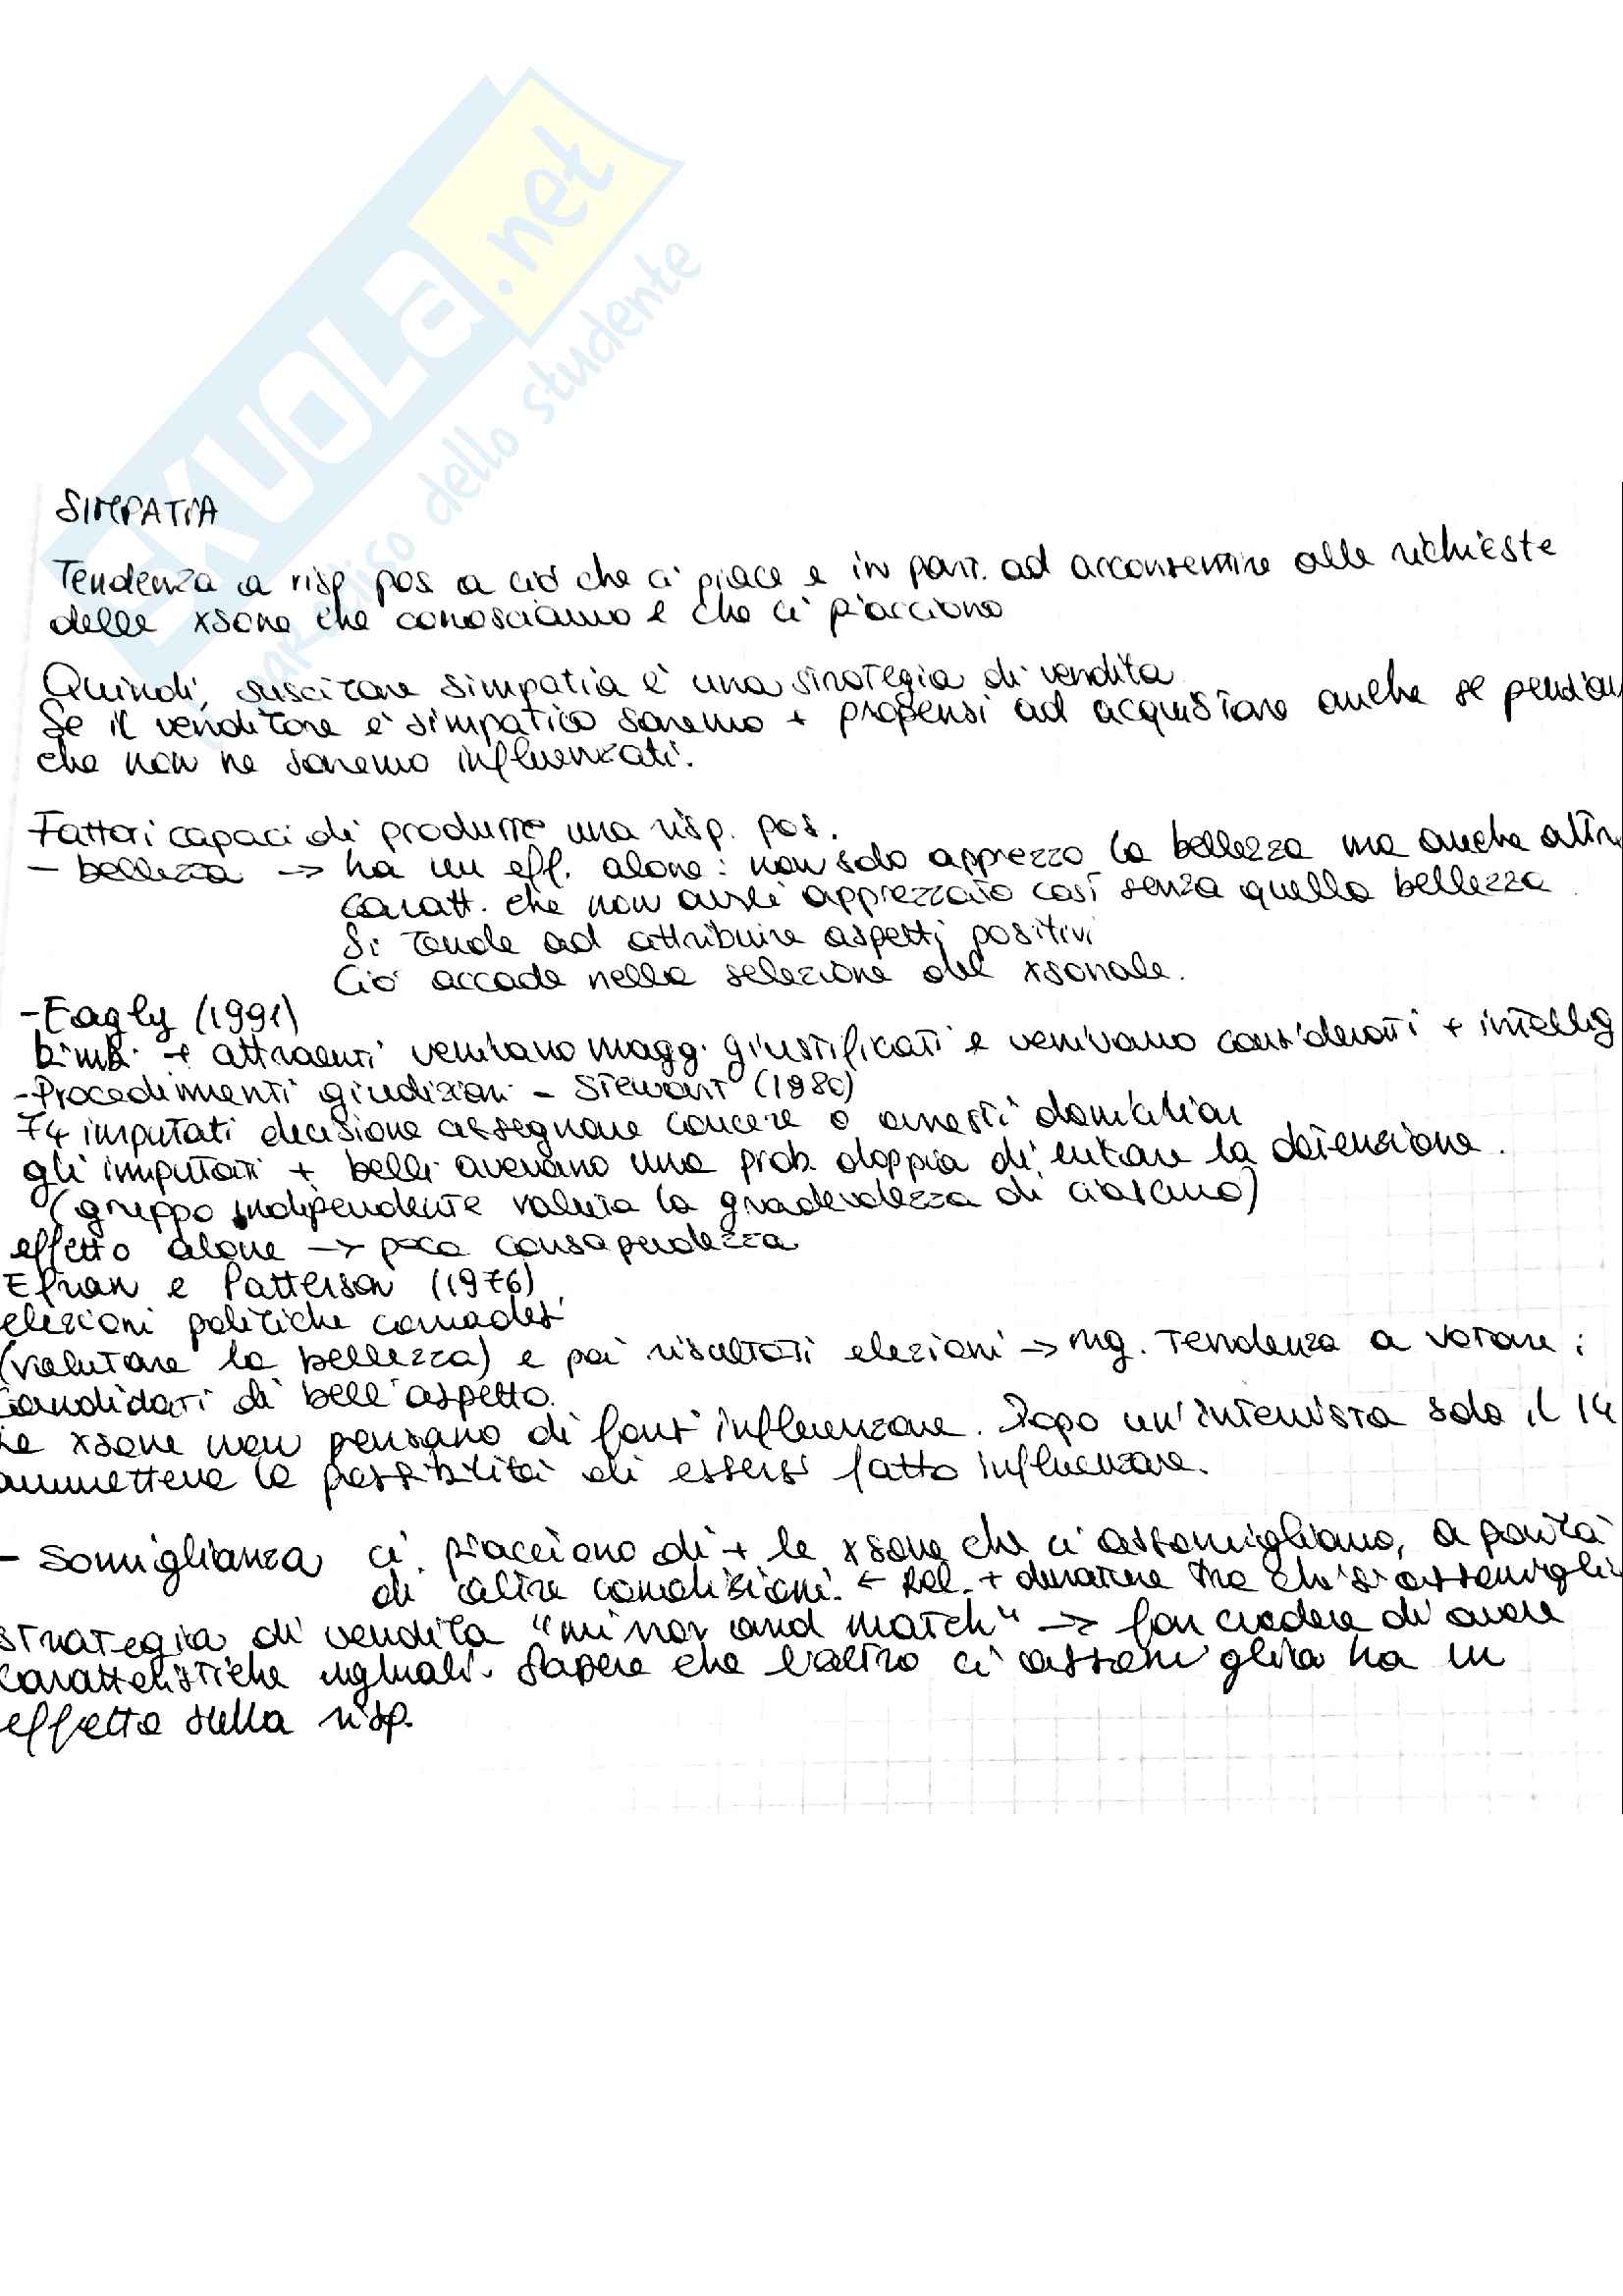 SKUOLA.net
paradiso dello studente
SIMPATIA
Tendenza a risp pos a ciò che ci piace e in part. ad acconsentire alle richieste
delle xsone che conosciamo e che ci piacciono
Quindi, suscitare simpatia è una strategia di vendita
Se il venditore è simpatico saremo + propensi ad acquistare anche se pensiam
che non ne saremo influenzati.
Fattori capaci di produrre una risp. pos.
- bellezza -> ha un eff. alone: non solo apprezzo la bellezza ma anche altre
caratt. che non avrei apprezzato così senza quella bellezza
Si tende ad attribuire aspetti positivi
Ciò accade nella selezione del xsonale.
- Eagly (1991)
bimbi + attraenti venivano magg. giustificati e venivano considerati + intellig
- Procedimenti giudiziari - Stewart (1980)
74 imputati decisione assegnare carcere o arresti domiciliari
gli imputati + belli avevano una prob. doppia di evitare la detenzione.
(gruppo indipendente valuta la gradevolezza di ciascuno)
effetto alone -> poca consapevolezza
Efran e Patterson (1976)
elezioni politiche canadesi
(valutare la bellezza) e poi risultati elezioni -> mg. tendenza a votare i
candidati di bell'aspetto.
Le xsone non pensano di farsi influenzare. Dopo un'intervista solo il 14
ammetteva la possibilità di essersi fatto influenzare.
- Somiglianza ci piacciono di + le xsone che ci assomigliano, a parità
di altre condizioni. <- Rel. + durature tra chi si assomiglia
strategia di vendita "mirror and match" -> far credere di avere
caratteristiche uguali. Sapere che l'altro ci assomiglia ha un
effetto sulla risp.